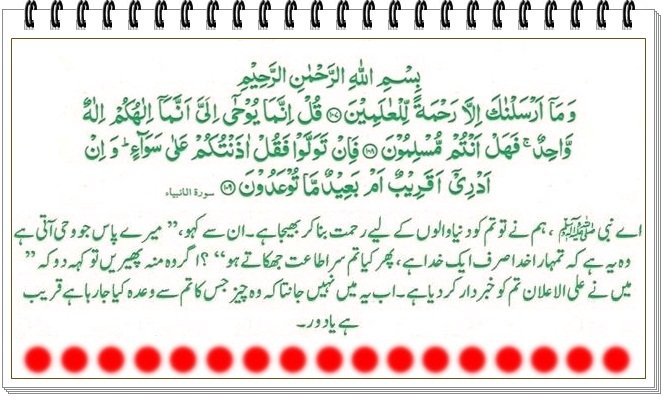 بِسْمِ اللهِ الرَّحْمٰنِ الرَّحِيْمِ
وَمَاۤ اَرْسَلْنٰكَ اِلَّا رَحْمَةً لِّلْعٰلَمِيْنَ ﴿۱۰۷﴾ قُلْ اِنَّمَا يُوْحٰۤى اِلَىَّ اَنَّمَاۤ اِلٰهُكُمْ اِلٰهٌ
وَّاحِدٌ ۚ فَهَلْ اَنْتُمْ مُّسْلِمُوْنَ ﴿۱۰۸﴾ فَاِنْ تَوَلَّوْا فَقُلْ اٰذَنْتُكُمْ عَلٰى سَوَآءٍ ؕ وَ اِنْ
اَدْرِىْۤ اَقَرِيْبٌ اَمْ بَعِيْدٌ مَّا تُوْعَدُوْنَ ﴿۱۰۹﴾ سورة الانبیاء
اے نبی ﷺ ، ہم نے تو تم کو دنیا والوں کے لیے رحمت بنا کر بھیجا ہے۔ ان سے کہو، ” میرے پاس جو وحی آتی ہے
وہ یہ ہے کہ تمہارا خدا صرف ایک خدا ہے، پھر کیا تم سر اطاعت جھکاتے ہو “ ؟ اگر وہ منہ پھیریں تو کہہ دو کہ ”
میں نے علی الاعلان تم کو خبردار کر دیا ہے۔ اب یہ میں نہیں جانتا کہ وہ چیز جس کا تم سے وعدہ کیا جا رہا ہے قریب
ہے یا دور۔